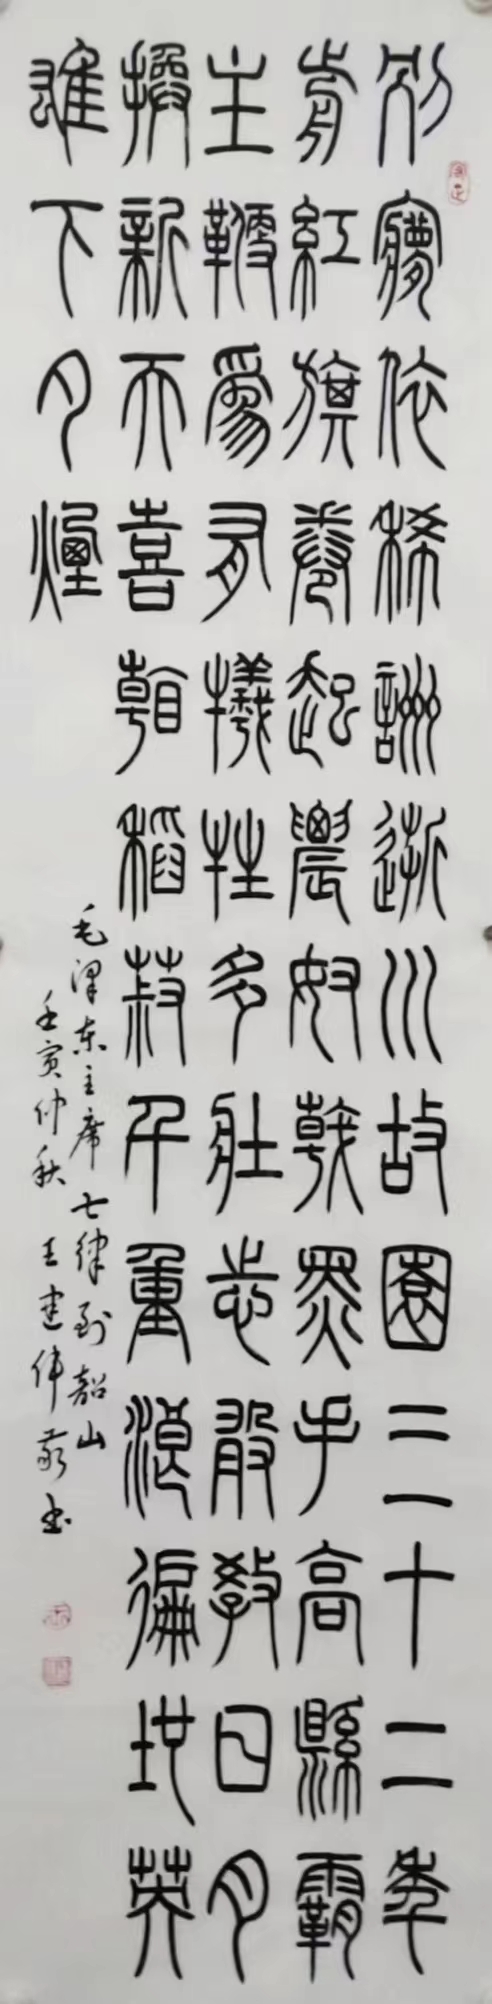 别夢依稀詶逝川故園三十二年
前紅旗卷起農奴戟黑手高縣霸
主鞭爲有犧牲多壯志敢教日月
換新天喜看稻菽千重浪徧地英
雄下夕煙
毛泽东主席七律到韶山
壬寅仲秋王建伟敬书